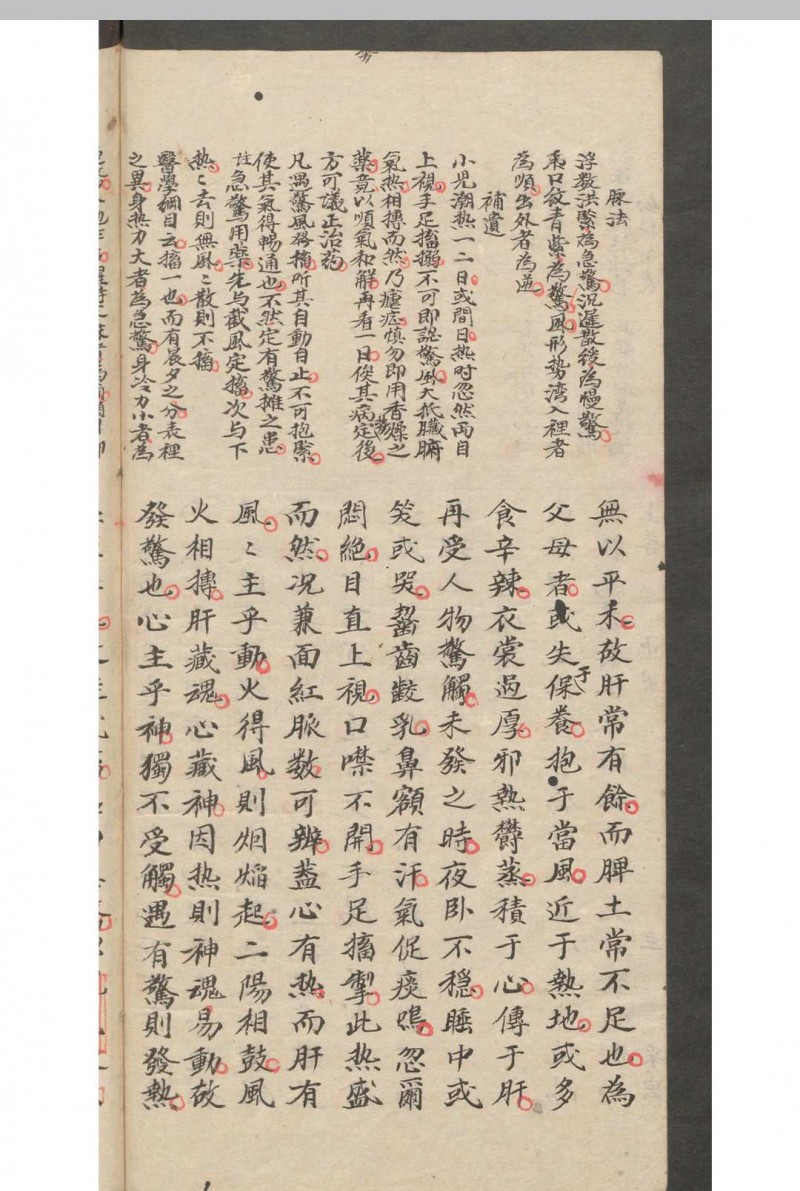 脉法
浮数洪緊為急驚沉遲散緩為慢驚
虎口紋青紫為驚風形势湾入裡者
為順出外者為逆
補遺
小児潮热一二日或間日热时忽然両目
上視手足搐搦不可即認驚风大抵臟腑
氣热相搏而然乃瘧症慎勿即用香燥之
藥竟以順氣和解再看一日俟其病定後
方可議正治药
凡遇驚風发搐听其自動自止不可抱緊
使其氣得暢通也不然定有驚攤之患
註急驚用藥先与截风定搐次与下
热〻去則無风〻散則不搐
醫學綱目云搐一也而有晨夕之分表裡
之異身热力大者為急驚身冷力小者為
無以平禾故肝常有餘而脾土常不足也為
父母者或失保養抱子當風近于熱地或多
食辛辣衣裳過厚邪熱欝蒸積于心傳于肝
再受人物驚觸未發之時夜卧不穏睡中或
笑或哭齧齒齩乳鼻額有汗氣促痰鳴忽爾
悶絶目直上視口噤不開手足搐掣此热盛
而然况兼面紅脈数可辨蓋心有热而肝有
風〻主乎動火得風則烟熖起二陽相鼓風
火相搏肝藏魂心藏神因热則神魂易動故
發驚也心主乎神獨不受觸遇有驚則發熱